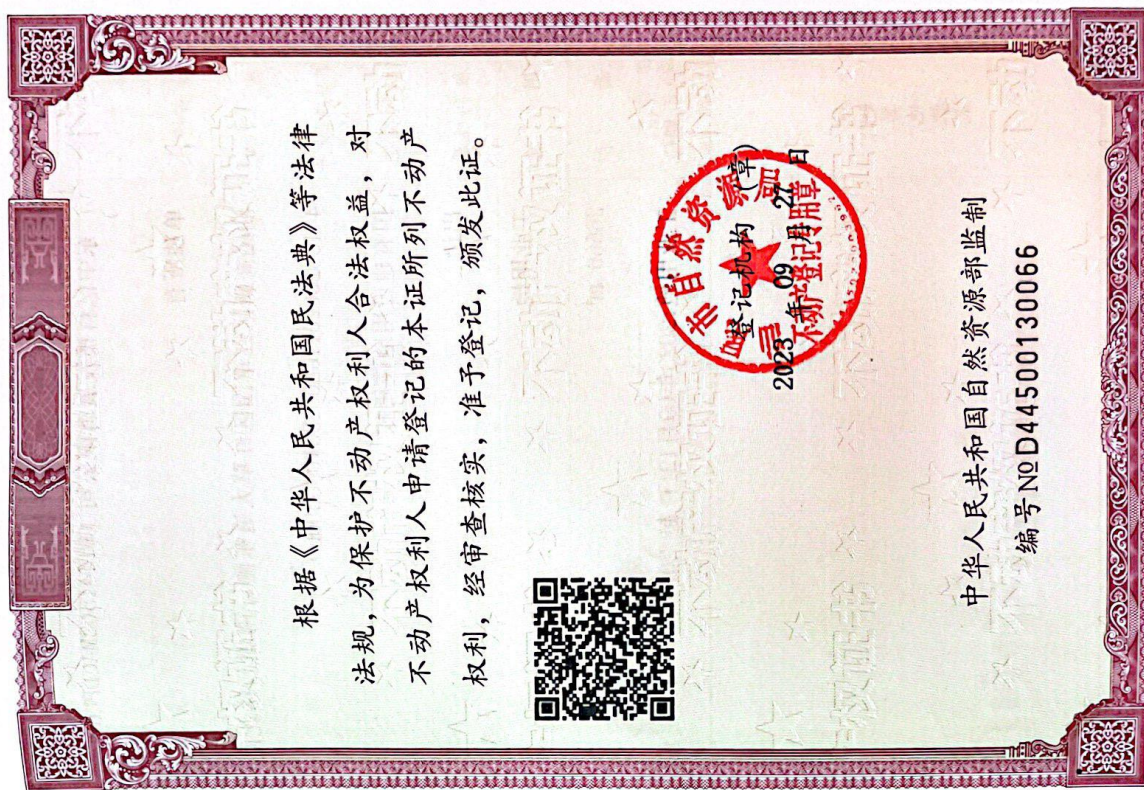 根据《中华人民共和国民法典》等法律
法规，为保护不动产权利人合法权益，对
不动产权利人申请登记的本证所列不动产
权利，经审查核实，准予登记，颁发此证。
市自然资源局
登记机构（章）
2023 年 09 月 27 日
不动产登记专用章
中华人民共和国自然资源部监制
编号 № D44500130066